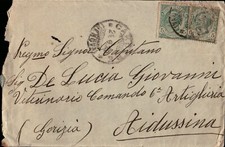 Pregmo Signor Capitano
Sig. De Lucia Giovanni
Veterinario Comando 6ª Artiglieria
(Gorizia) Aidussina